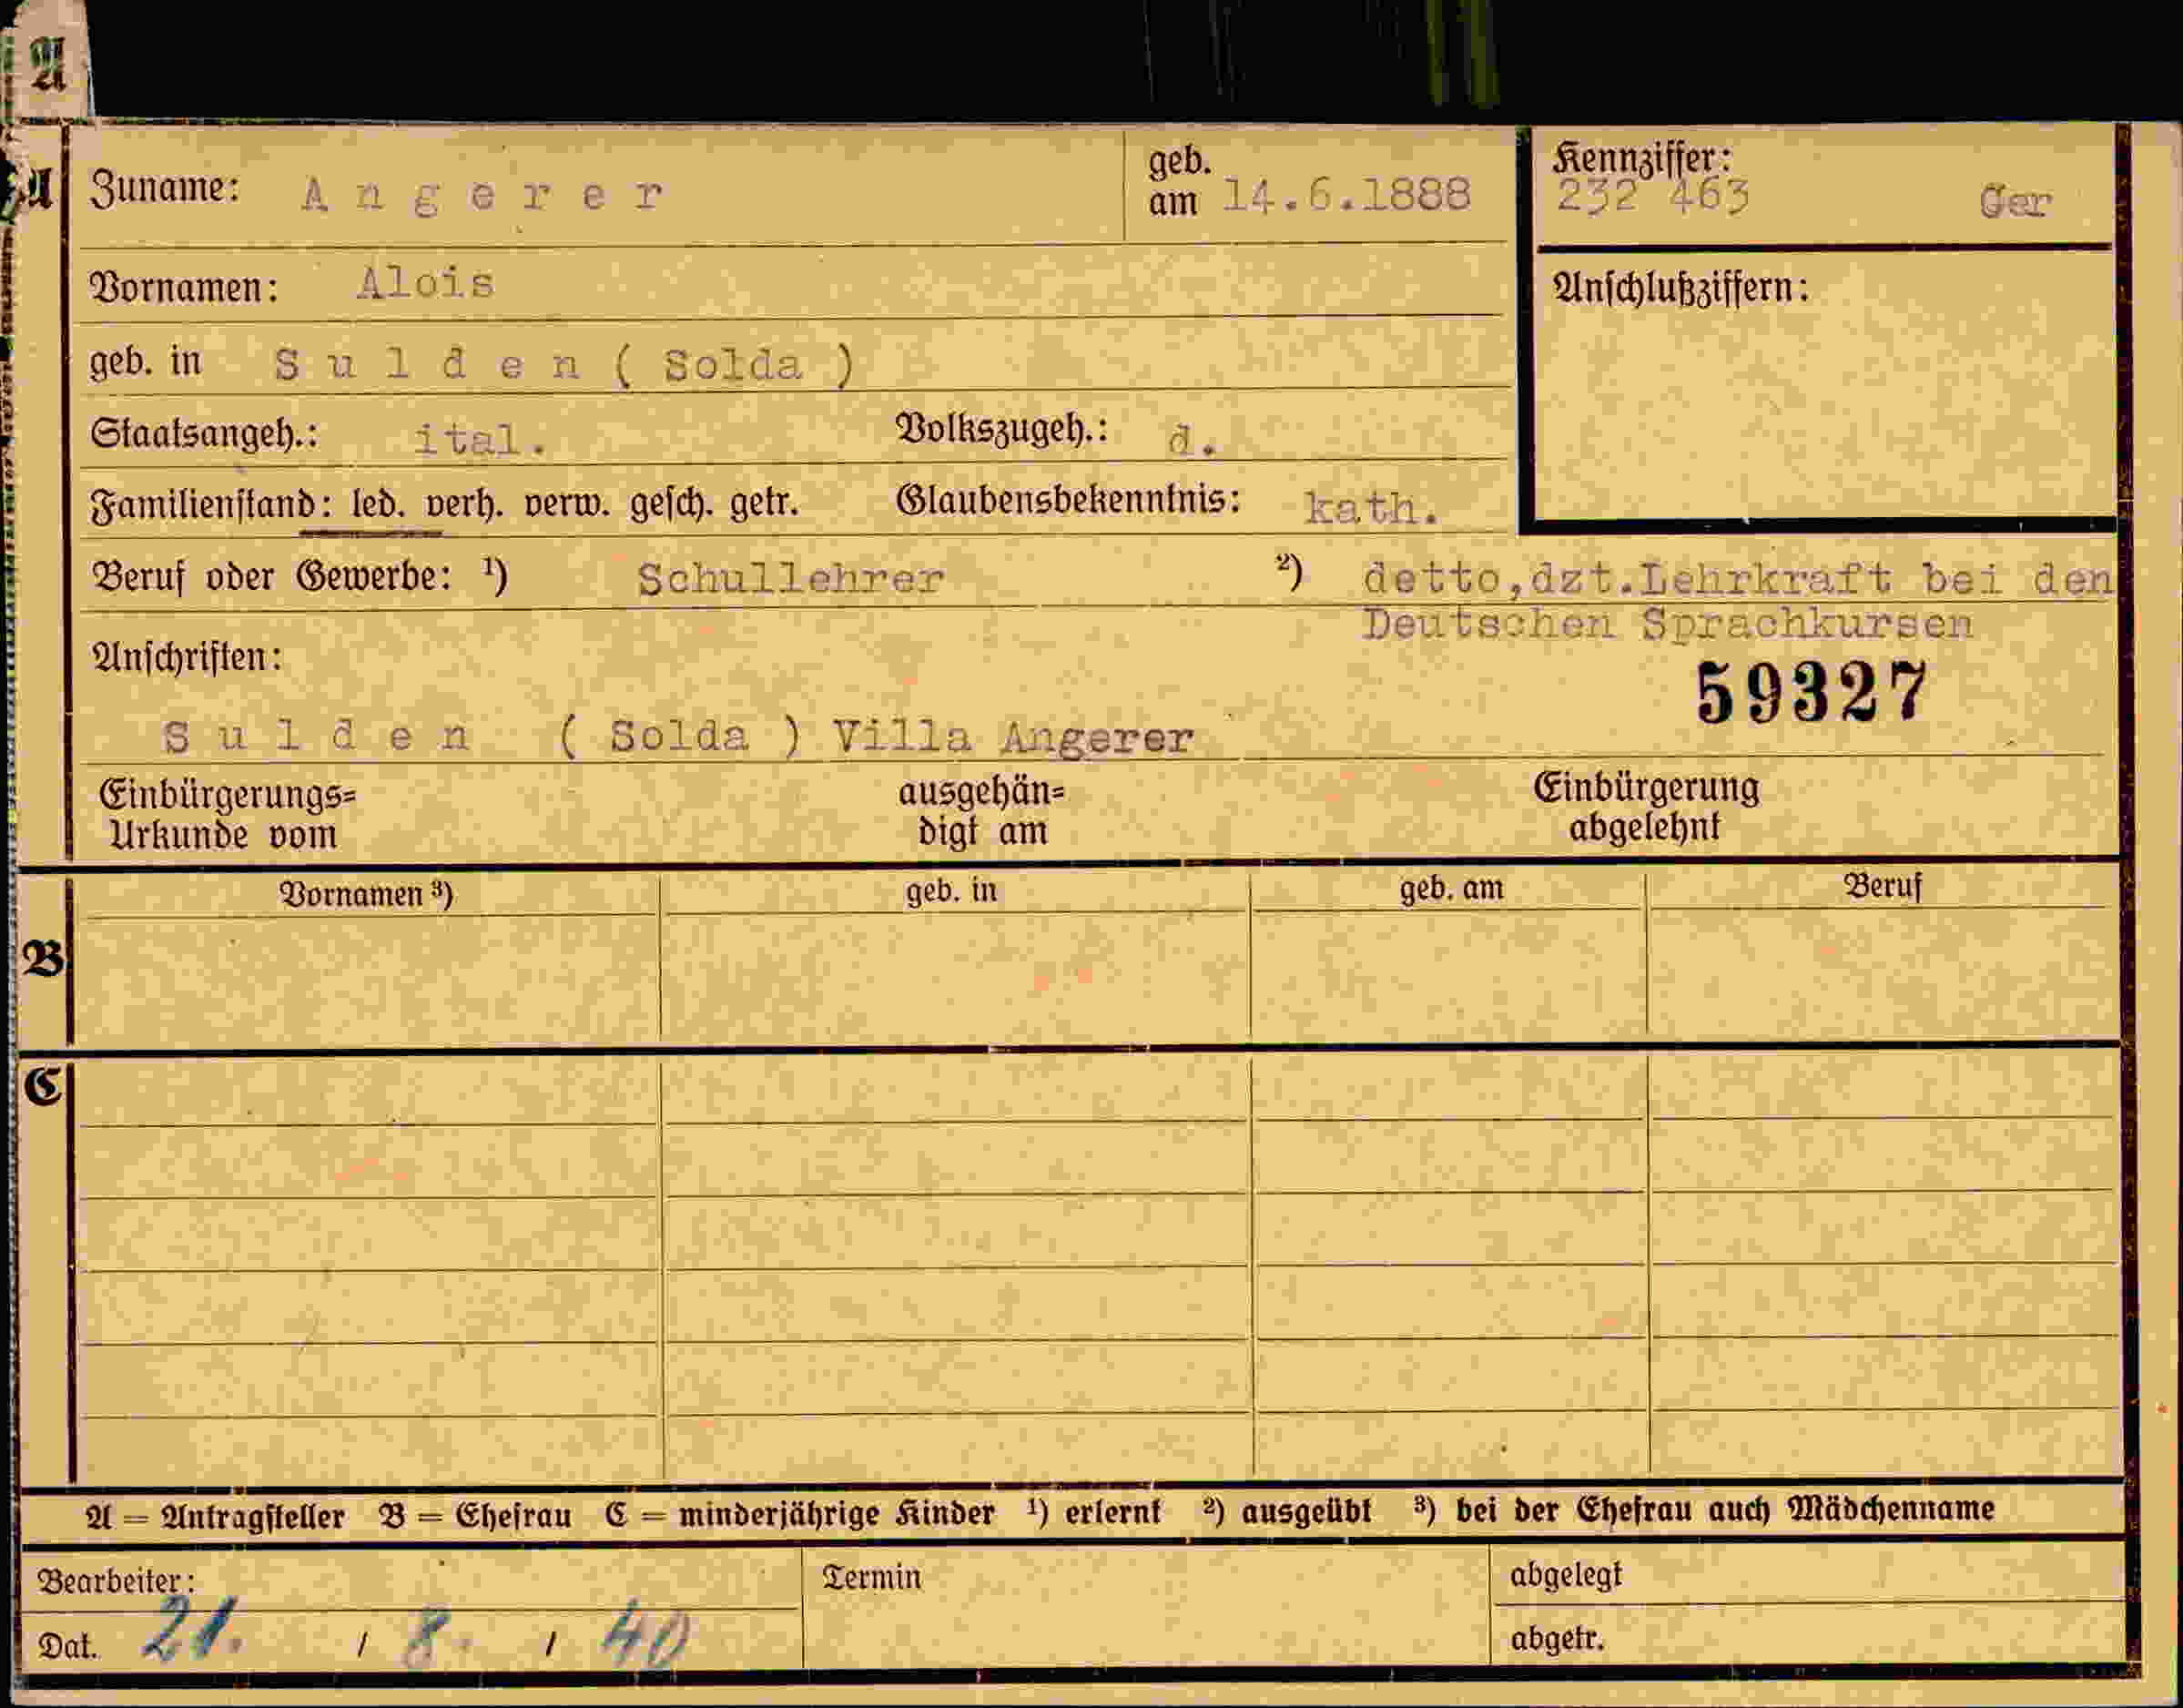 A
A
Zuname: Angerer geb. am 14.6.1888 Kennziffer: 232 463 Ger
Vornamen: Alois Anschlußziffern:
geb. in Sulden ( Solda )
Staatsangeh.: ital. Volkszugeh.: d.
Familienstand: led. verh. verw. gesch. getr. Glaubensbekenntnis: kath.
Beruf oder Gewerbe: ¹) Schullehrer ²) detto,dzt.Lehrkraft bei den
Deutschen Sprachkursen
Anschriften:
59327
Sulden ( Solda ) Villa Angerer
Einbürgerungs= ausgehän= Einbürgerung
Urkunde vom digt am abgelehnt
Vornamen ³) geb. in geb. am Beruf
B
C
A = Antragsteller B = Ehefrau C = minderjährige Kinder ¹) erlernt ²) ausgeübt ³) bei der Ehefrau auch Mädchenname
Bearbeiter: Termin abgelegt
Dat. 21. / 8. / 40 abgetr.